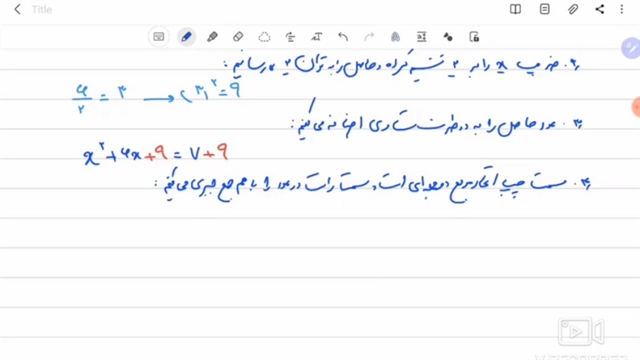 Title
۲. ضریب x را به ۲ تقسیم کرده و حاصل را به توان ۲ می‌رسانیم:
۶/۲ = ۳ → (۳)^۲ = ۹
۳. عدد حاصل را به دو طرف تساوی اضافه می‌کنیم:
x^۲ + ۶x + ۹ = ۷ + ۹
۴. سمت چپ اتحاد مربع دو جمله‌ای است، سمت راست دو عدد را با هم جمع جبری می‌کنیم: